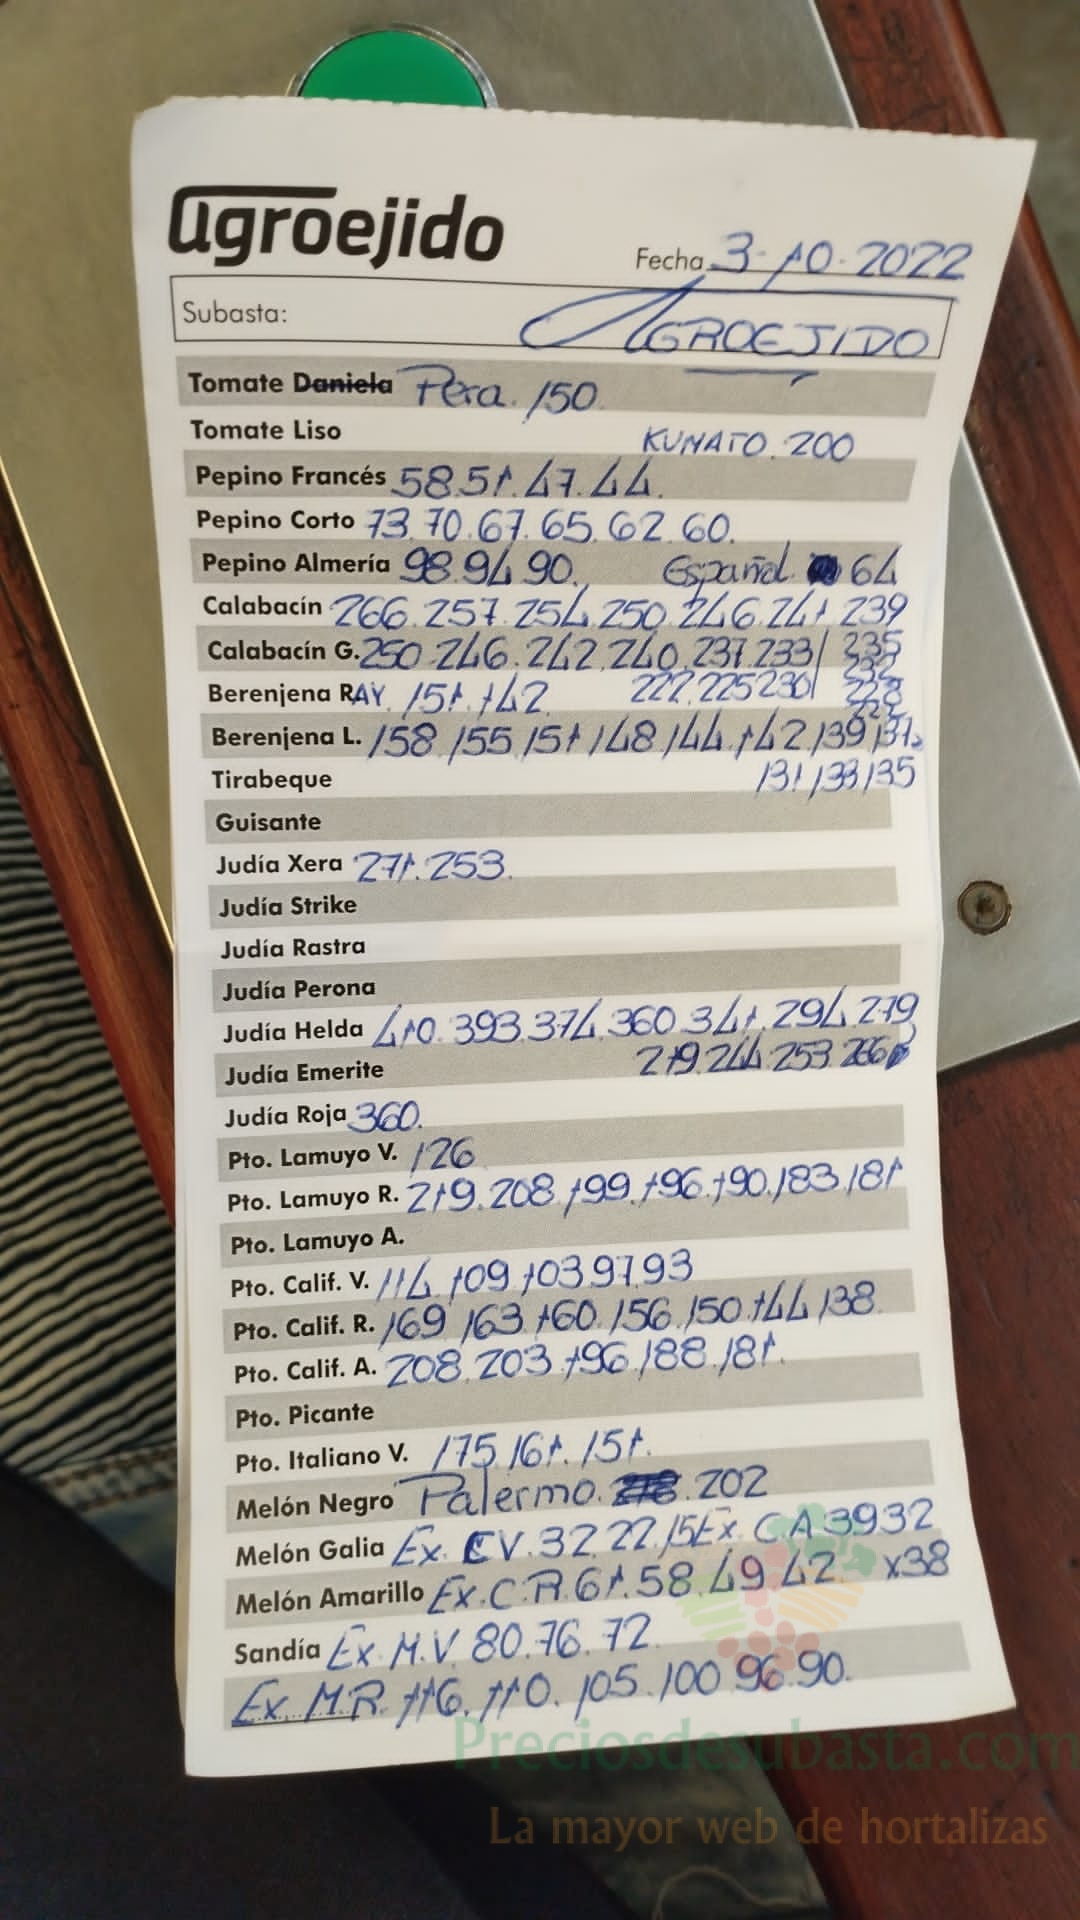 agroejido
Fecha 3-10-2022
Subasta: AGROEJIDO
Tomate Daniela Pera. 150.
Tomate Liso KUMATO. 200
Pepino Francés 58.51.47.44.
Pepino Corto 73.70.67.65.62.60.
Pepino Almería 98.94.90. Español. 64
Calabacín 266.257.254.250.246.241.239
Calabacín G. 250.246.242.240.237.233/ 235
Berenjena RAY. 151.142. 222.225230/ 228
Berenjena L. 158.155.151.148.144.142.139.137.
Tirabeque 131.133.135
Guisante
Judía Xera 271.253.
Judía Strike
Judía Rastra
Judía Perona
Judía Helda 410.393.374.360.341.294.279
Judía Emerite 219.244.253.266
Judía Roja 360.
Pto. Lamuyo V. 126
Pto. Lamuyo R. 219.208.199.196.190.183.181
Pto. Lamuyo A.
Pto. Calif. V. 114.109.103.97.93
Pto. Calif. R. 169.163.160.156.150.144.138.
Pto. Calif. A. 208.203.196.188.181.
Pto. Picante
Pto. Italiano V. 175.161.151.
Melón Negro Palermo. 202
Melón Galia Ex. CV. 32.22.15 Ex. CA 39 32
Melón Amarillo Ex.C.R. 61.58.49.42. x38
Sandía Ex.M.V. 80.76.72.
Ex.M.R. 116.110.105.100.96.90.
Preciosdesubasta.com
La mayor web de hortalizas